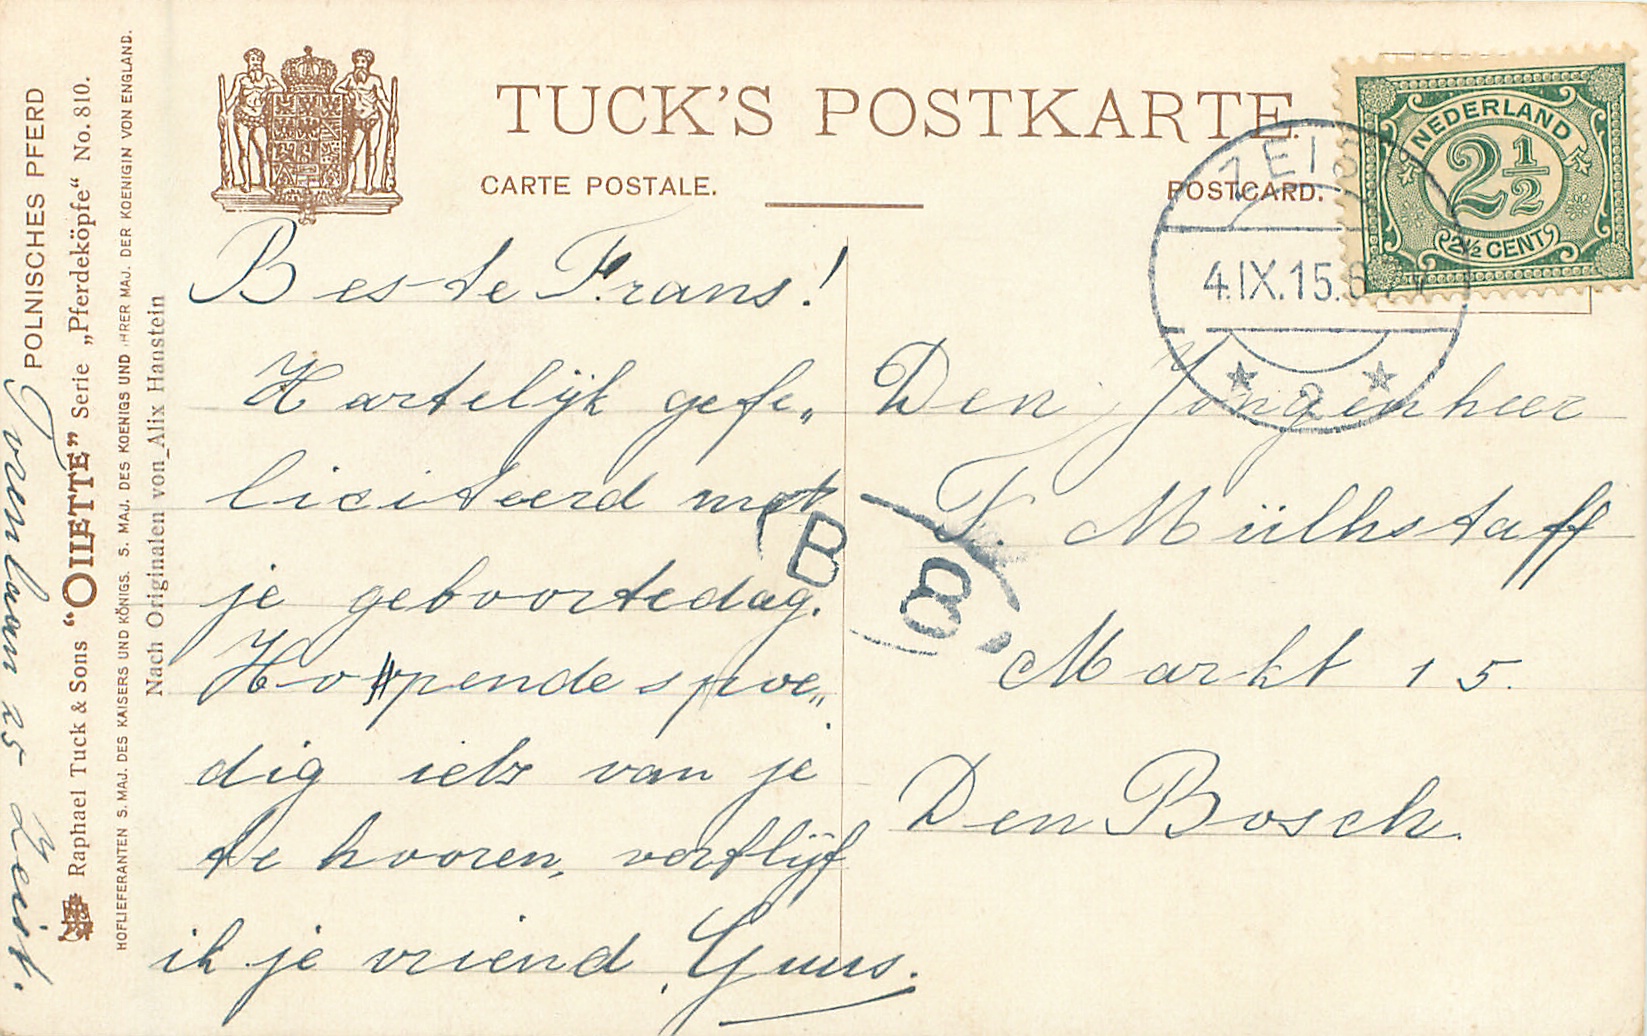 TUCK'S POSTKARTE.
CARTE POSTALE.
POSTCARD.
NEDERLAND
2½
2½ CENT
ZEIST
4.IX.15.6
2
Beste Frans!
Hartelijk gefe„
liciteerd met
je geboortedag.
Hoppende spoe„
dig iets van je
te hooren, verblijf
ik je vriend, Guus.
B
8
Den Jongenheer
F. Mülhstaff
Markt 15.
Den Bosch.
POLNISCHES PFERD
Raphael Tuck & Sons “OILETTE” Serie „Pferdeköpfe“ No. 810.
HOFLIEFERANTEN S. MAJ. DES KAISERS UND KÖNIGS. S. MAJ. DES KOENIGS UND IHRER MAJ. DER KOENIGIN VON ENGLAND.
Nach Originalen von Alix Hanstein
25 Zeist.